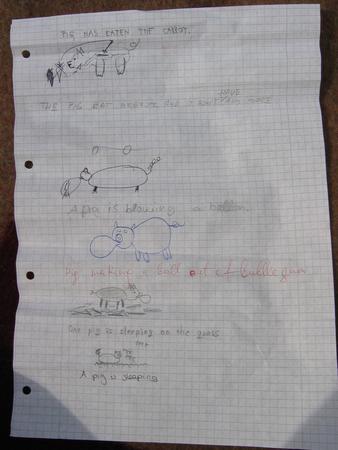 PIG HAS EATEN THE CARROT.
THE PIG EAT
HAVE
A pig is blowing a balloon.
Pig making a ball out of bubble gum
One pig is sleeping on the grass
A pig is sleeping